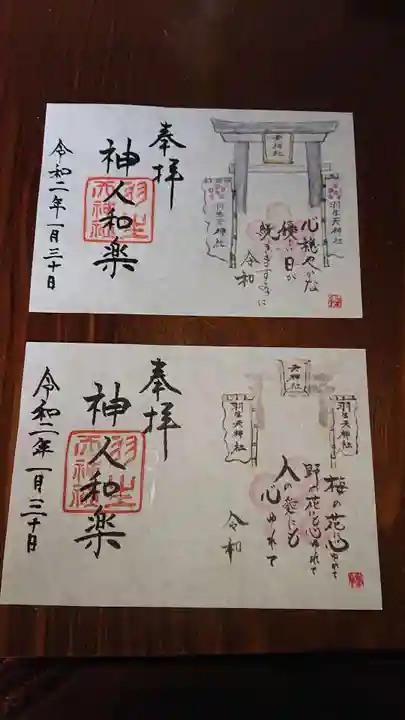 天神社
羽生天神社
羽生天神社
心穏やかな
優しい日が
続きますように
令和
奉拝
神人和楽
羽生天神社
令和二年一月三十日
天神社
羽生天神社
羽生天神社
梅の花に心ゆれて
野の花に心ゆれて
人の愛にも
心ゆれて
令和
奉拝
神人和楽
羽生天神社
令和二年一月三十日